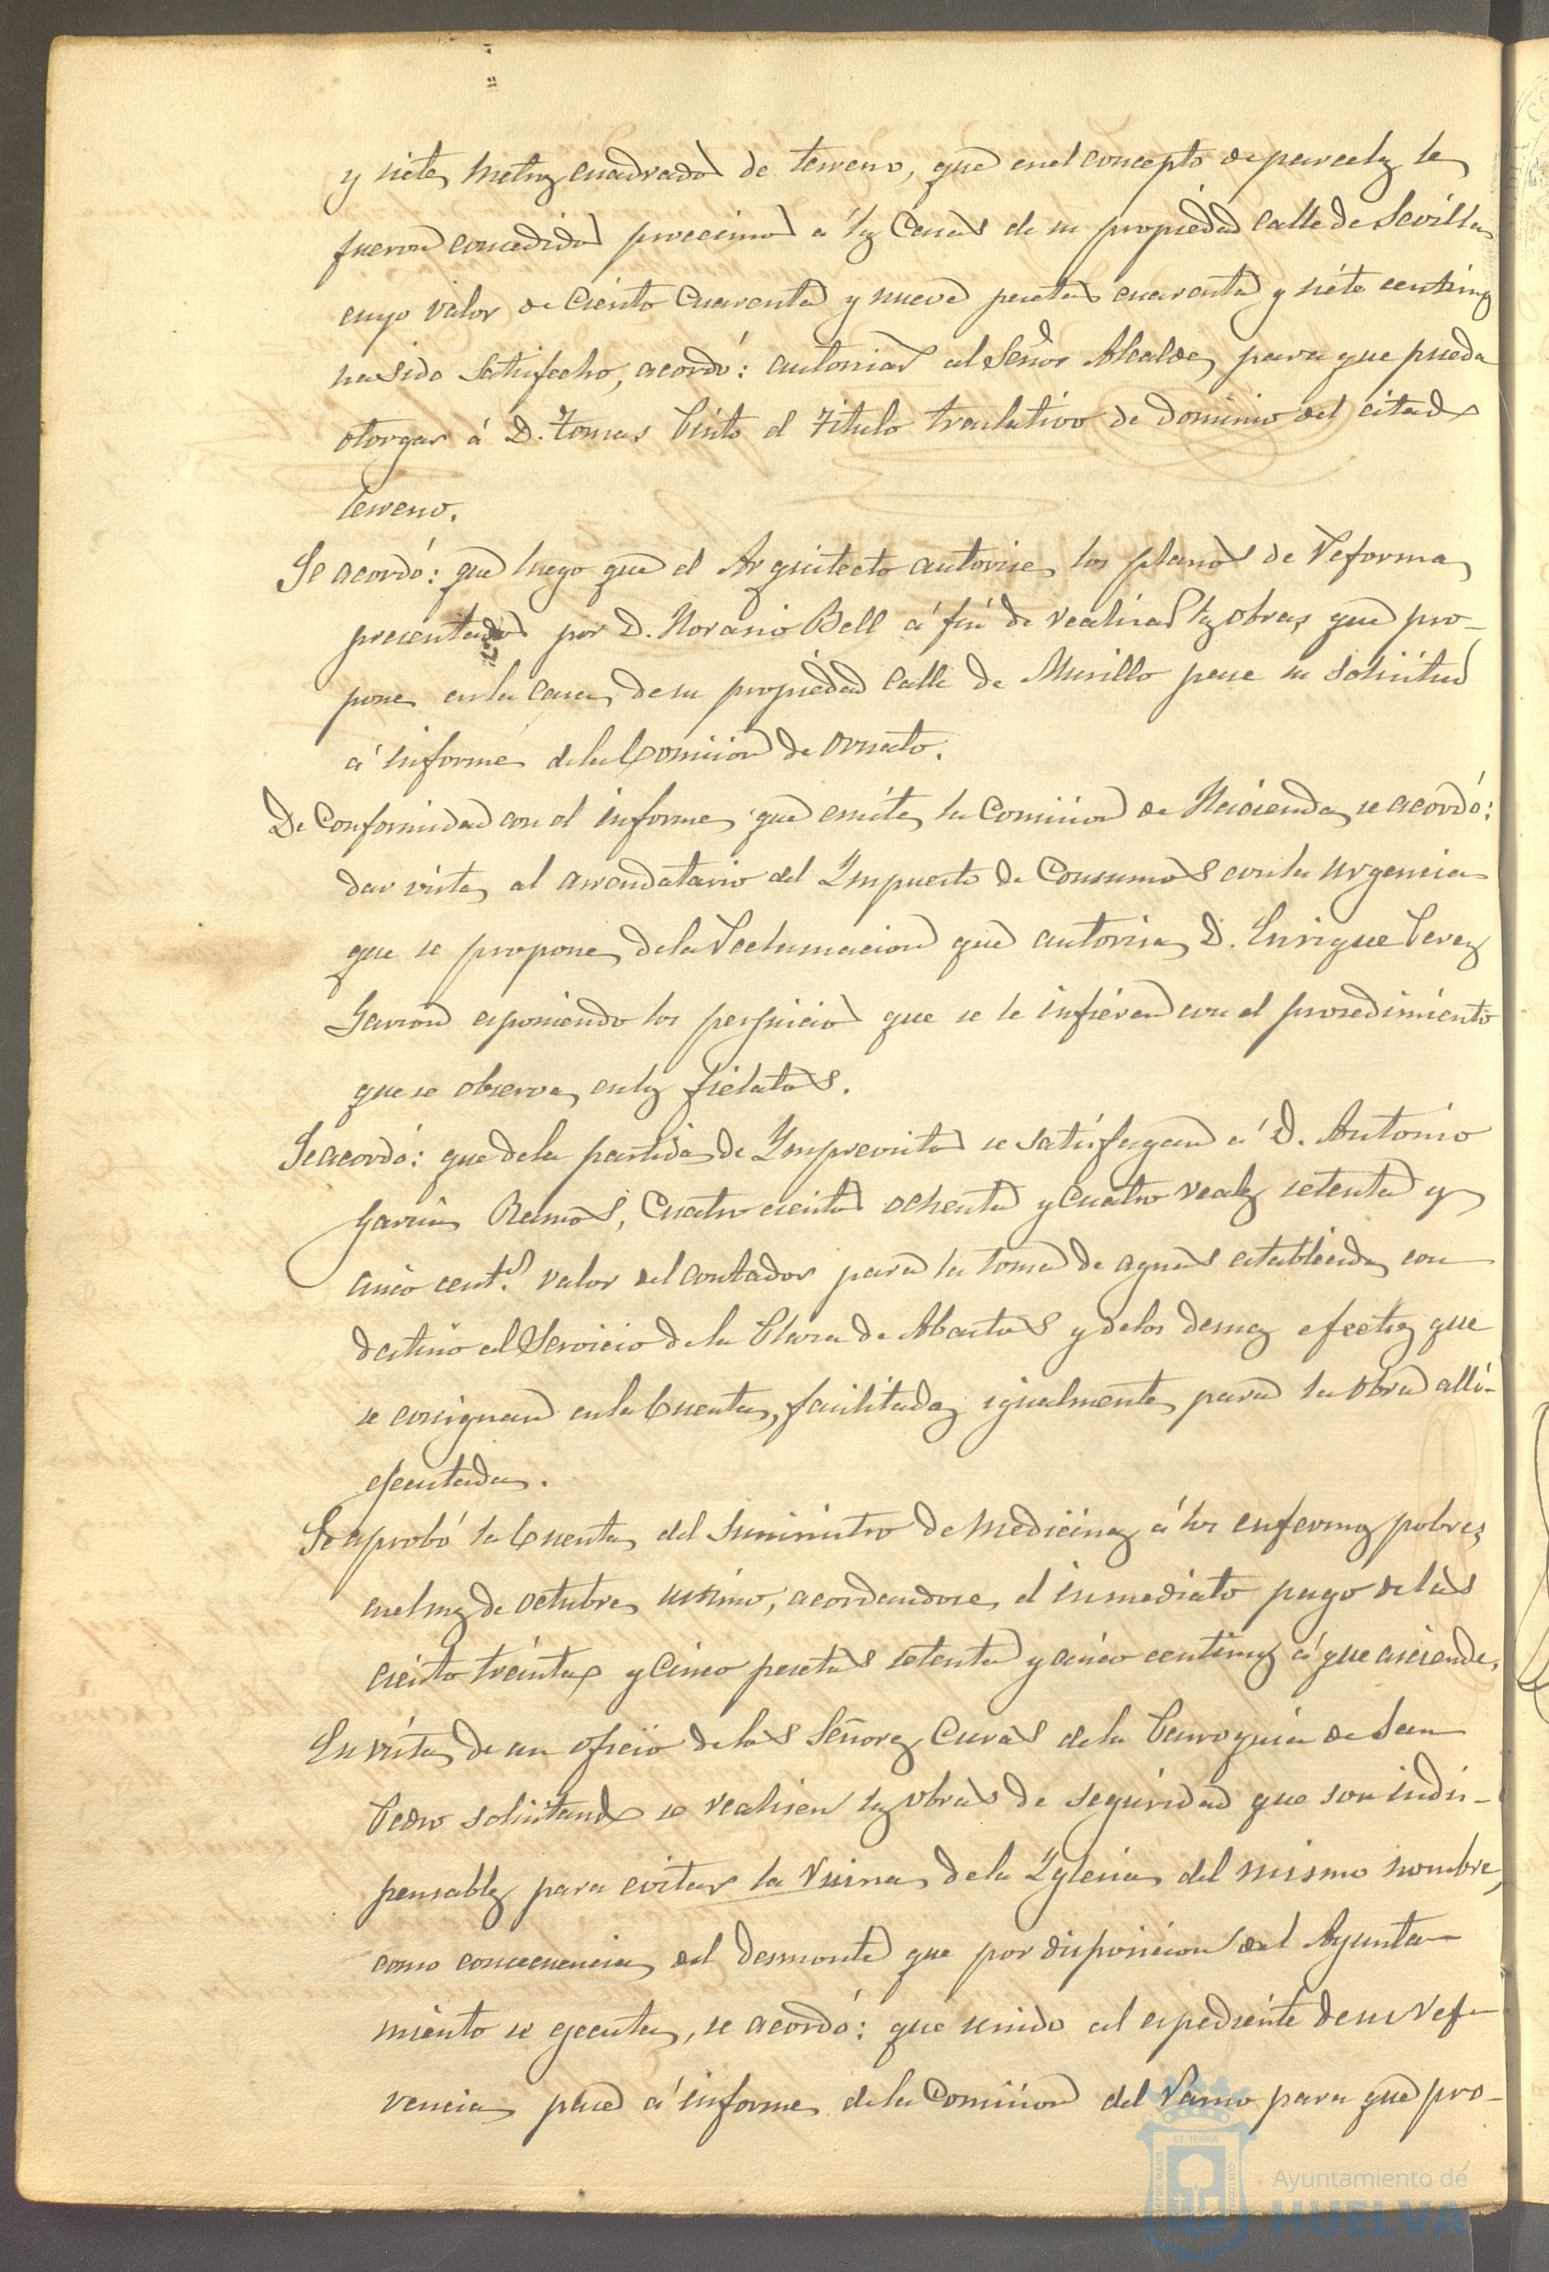 y siete metros cuadrados de terreno, que en el concepto de parcelas le
fueron concedidos procsimos á las Casas de su propiedad calle de Sevilla
cuyo valor de Ciento Cuarenta y nueve pesetas cuarenta y siete centimos
ha sido satisfecho, acordó: autorizar al Señor Alcalde para que pueda
otorgar á D. Tomas Pinto el Titulo traslativo de dominio del citado
terreno.
Se acordó: que luego que el Arquitecto autorise los planos de reforma
presentados por D. Horasio Bell á fin de realizar las obras que pro-
pone en la Casa de su propiedad Calle de Murillo pase su solicitud
á informe de la Comision de ornato.
De Conformidad con el informe que emite la Comision de Hacienda se acordó:
dar vista al arrendatario del Ympuesto de Consumos con la urgencia
que se propone de la reclamacion que autoriza D. Enrique Perez
Garzon esponiendo los perjuicios que se le infieren con el prosedimiento
que se observa en los fielatos.
Se acordó: que de la partida de Ymprevistos se satisfagan á D. Antonio
Garcia Ramos, Cuatro cientos ochenta y Cuatro reales setenta y
cinco cent.s valor del contador para la toma de aguas establecida con
destino al Servicio de la Plaza de Abastos y de los demas efectos que
se consignan en la Cuenta, facilitados igualmente para la obra alli
ejecutada.
Se aprobó la Cuenta del suministro de medicinas á los enfermos pobres
en el mes de octubre ultimo, acordandose el inmediato pago de las
ciento treinta y Cinco pesetas setenta y cinco centimos á que asciende.
En vista de un oficio de los Señores Curas de la Parroquia de San
Pedro solicitando se realisen las obras de seguridad que son indis-
pensables para evitar la ruina de la Yglesia del mismo nombre,
como concecuencia del desmonte que por disposicion del Ayunta-
miento se ejecuta, se acordó: que unido al espediente de su refe-
rencia pase á informe de la Comision del ramo para que pro-
Ayuntamiento de
HUELVA